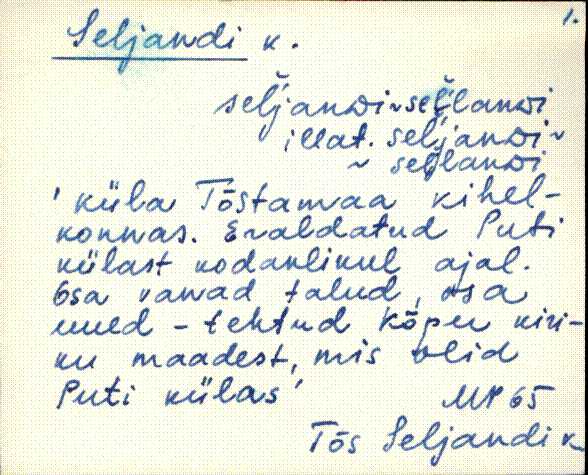 1.
Seljandi k.
seĺjanᴅi ~ seĺĺanᴅi
illat. seĺjanᴅi ~
~ seĺĺanᴅi
'küla Tõstamaa kihel-
konnas. Eraldatud Puti
külast kodanlikul ajal.
Osa vanad talud, osa
uued – tehtud Kõpu kiri-
ku maadest, mis olid
Puti külas'
MP 65
Tõs Seljandi k